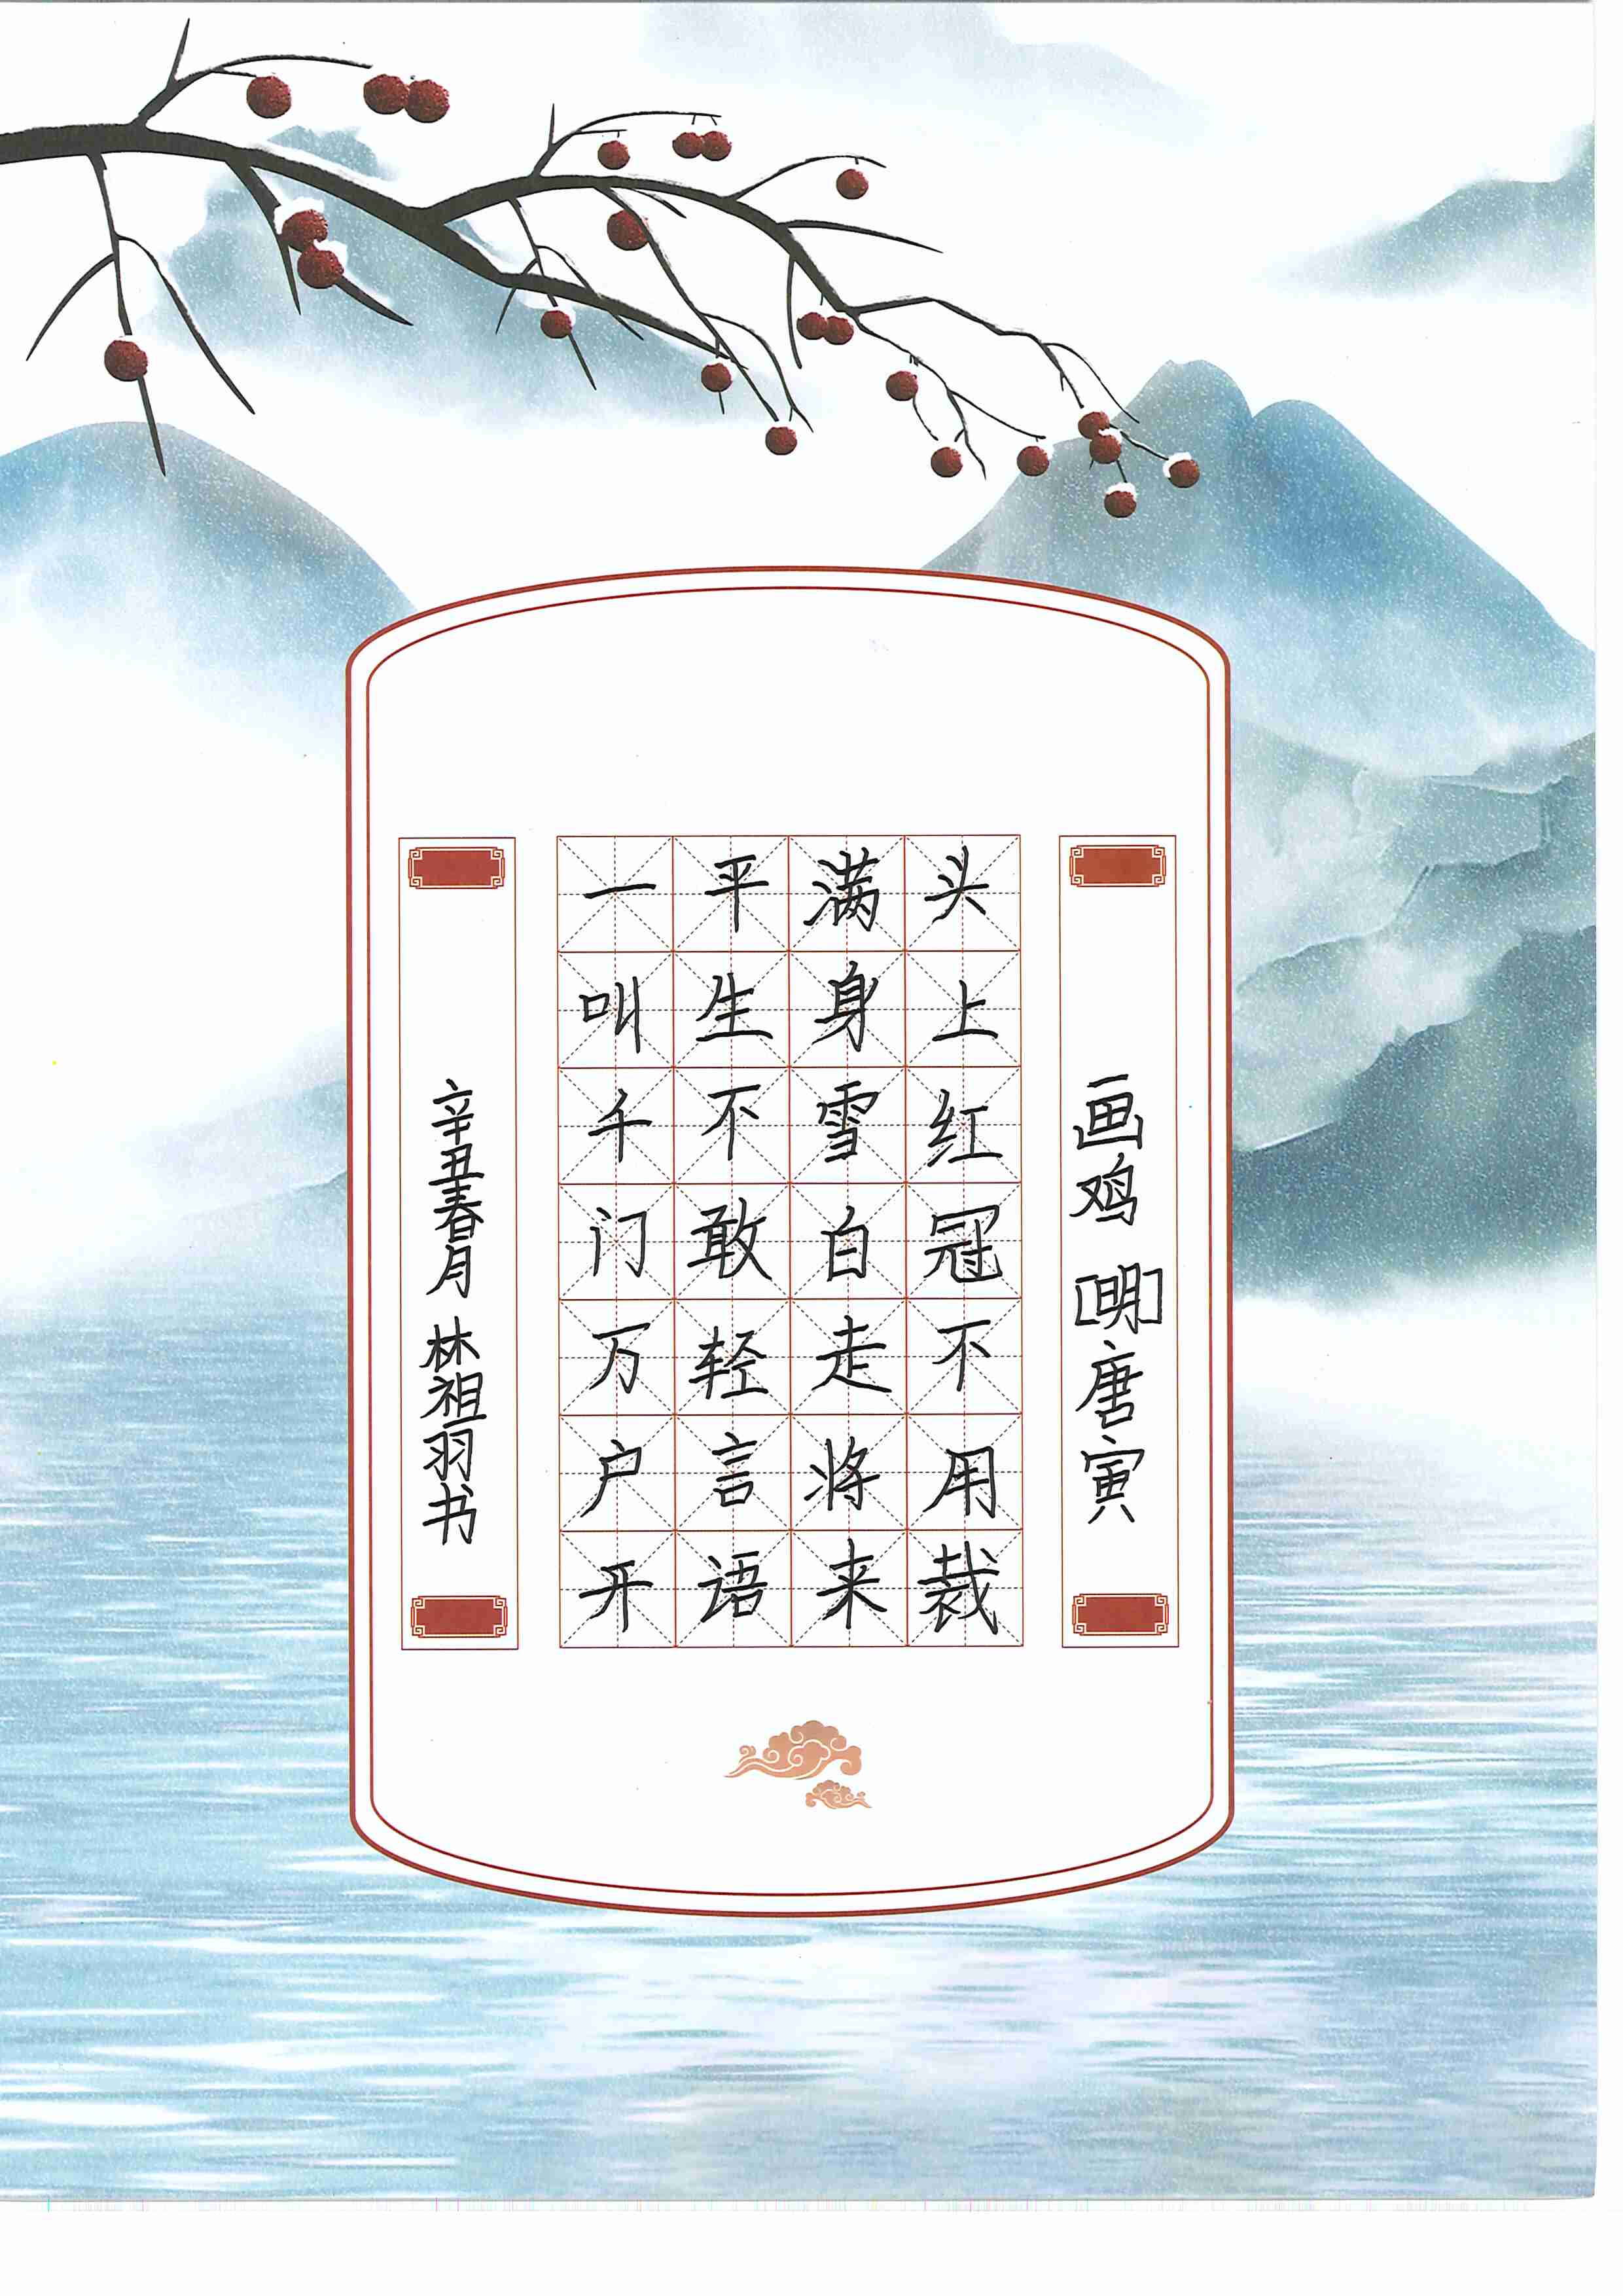 画鸡 [明]唐寅
头上红冠不用裁
满身雪白走将来
平生不敢轻言语
一叫千门万户开
辛丑春月 林祖羽书